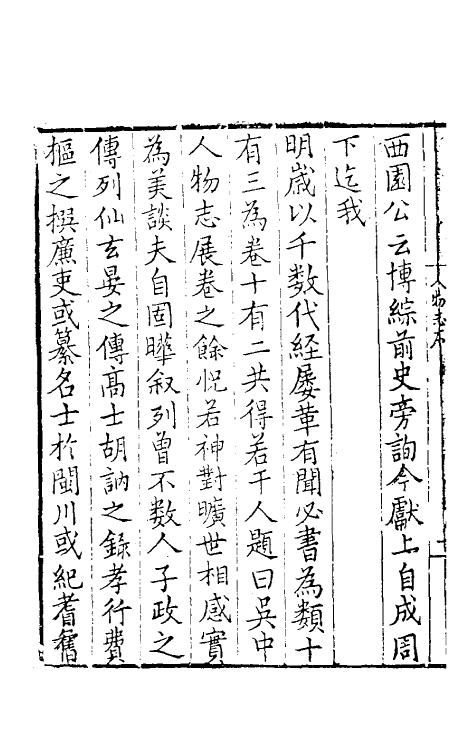 西園公云博綜前史旁詢今獻上自成周
下迄我
明嵗以千數代経屡革有聞必書為類十
有三為卷十有二共得若干人題曰吳中
人物志展卷之餘恍若神對曠世相感實
為美談夫自固曄叙列曾不数人子政之
傳列仙玄晏之傳髙士胡訥之錄孝行費
樞之撰廉吏或纂名士於閩川或紀耆舊
人物志序